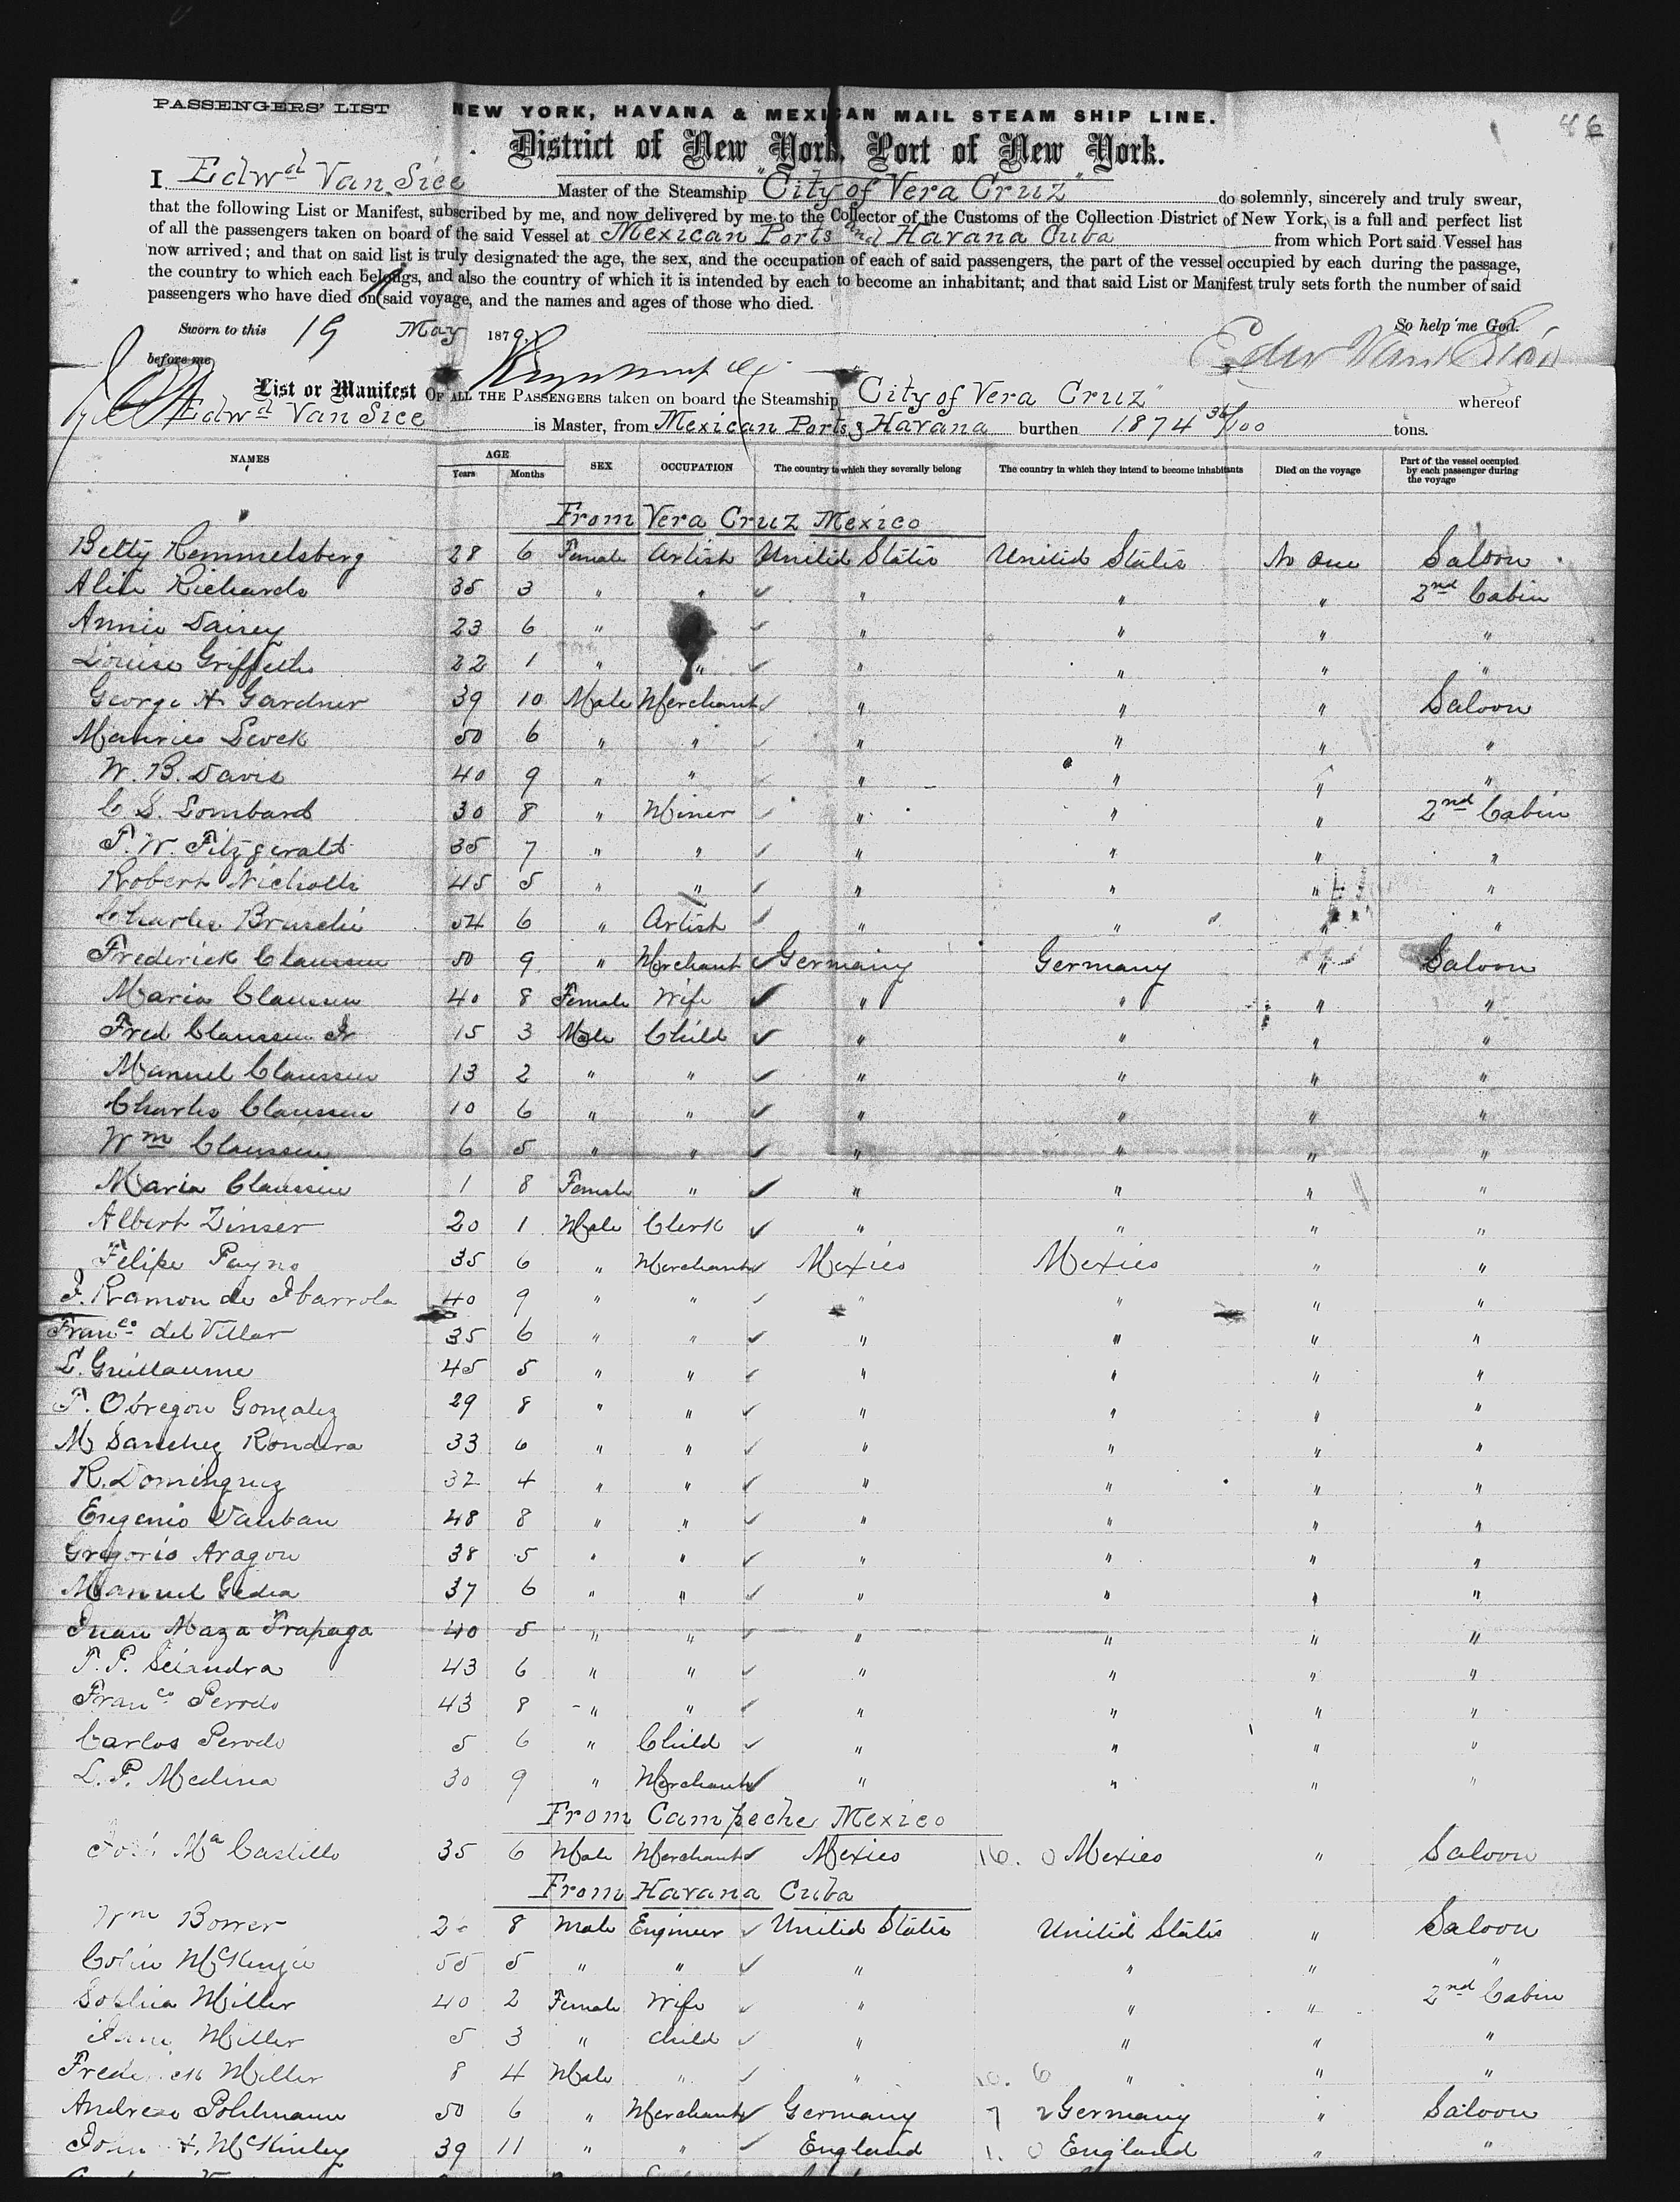 PASSENGERS' LIST
NEW YORK, HAVANA & MEXICAN MAIL STEAM SHIP LINE.
86
District of New York, Port of New York.
I Edwd Van Sice Master of the Steamship "City of Vera Cruz" do solemnly, sincerely and truly swear,
that the following List or Manifest, subscribed by me, and now delivered by me to the Collector of the Customs of the Collection District of New York, is a full and perfect list
of all the passengers taken on board of the said Vessel at Mexican Ports and Havana Cuba from which Port said Vessel has
now arrived; and that on said list is truly designated the age, the sex, and the occupation of each of said passengers, the part of the vessel occupied by each during the passage,
the country to which each belongs, and also the country of which it is intended by each to become an inhabitant; and that said List or Manifest truly sets forth the number of said
passengers who have died on said voyage, and the names and ages of those who died.
Sworn to this 19 May 1879. So help me God.
before me Edw Van Sice
List or Manifest OF ALL THE PASSENGERS taken on board the Steamship City of Vera Cruz" whereof
Edwd Van Sice is Master, from Mexican Ports & Havana burthen 1874 36/100 tons.
NAMES AGE Years Months SEX OCCUPATION The country to which they severally belong The country in which they intend to become inhabitants Died on the voyage Part of the vessel occupied by each passenger during the voyage
From Vera Cruz Mexico
Betty Hemmelsberg 28 6 Female Artist United States United States No One Saloon
Alice Richards 35 3 " " " " " 2nd Cabin
Annie Dairey 23 6 " " " " "
Louise Griffeths 22 1 " " " " " "
George H Gardner 39 10 Male Merchant " " " Saloon
Maurice Levek 50 6 " " " " " "
W. B. Davis 40 9 " " " " " "
C S. Lombard 30 8 " Miner " " " 2nd Cabin
P. W. Fitzgerald 35 7 " " " " " "
Robert Nicholls 45 5 " " " " " "
Charles Bruschi 54 6 " Artist " " " "
Frederick Claussen 50 9 " Merchant Germany Germany " Saloon
Maria Claussen 40 8 Female Wife " " " "
Fred Claussen Jr 15 3 Male Child " " " "
Manuel Claussen 13 2 " " " " " "
Charles Claussen 10 6 " " " " " "
Wm Claussen 6 5 " " " " " "
Maria Claussen 1 8 Female " " " " "
Albert Zinser 20 1 Male Clerk " " " "
Felipe Payno 35 6 " Merchant Mexico Mexico " "
J. Ramon de Ibarrola 40 9 " " " " " "
Franco del Villar 35 6 " " " " " "
L. Guillaume 45 5 " " " " " "
P. Obregon Gonzalez 29 8 " " " " " "
M Sanchez Rondera 33 6 " " " " " "
R. Dominguez 32 4 " " " " " "
Eugenio Vauban 48 8 " " " " " "
Gregorio Aragon 38 5 " " " " " "
Manuel Gedea 37 6 " " " " " "
Juan Maza Trapaga 40 5 " " " " " "
P. P. Seiandra 43 6 " " " " " "
Franco Perrodo 43 8 " " " " " "
Carlos Perrodo 5 6 " Child " " " "
L. P. Medina 30 9 " Merchant " " " "
From Campeche Mexico
José Ma Castillo 35 6 Male Merchant Mexico 16. 0 Mexico " Saloon
From Havana Cuba
Wm Bower 8 Male Engineer United States United States " Saloon
Colin McKenzie 55 5 " " " " " "
Sophia Miller 40 2 Female Wife " " " 2nd Cabin
Miller 5 3 " Child " " " "
Frederick Miller 8 4 Male " " 10. 6 " " "
Andreas Pohlmann 50 6 " Merchant Germany 7 2 Germany " Saloon
John H. McKinley 39 11 " " England 1. 0 England " "